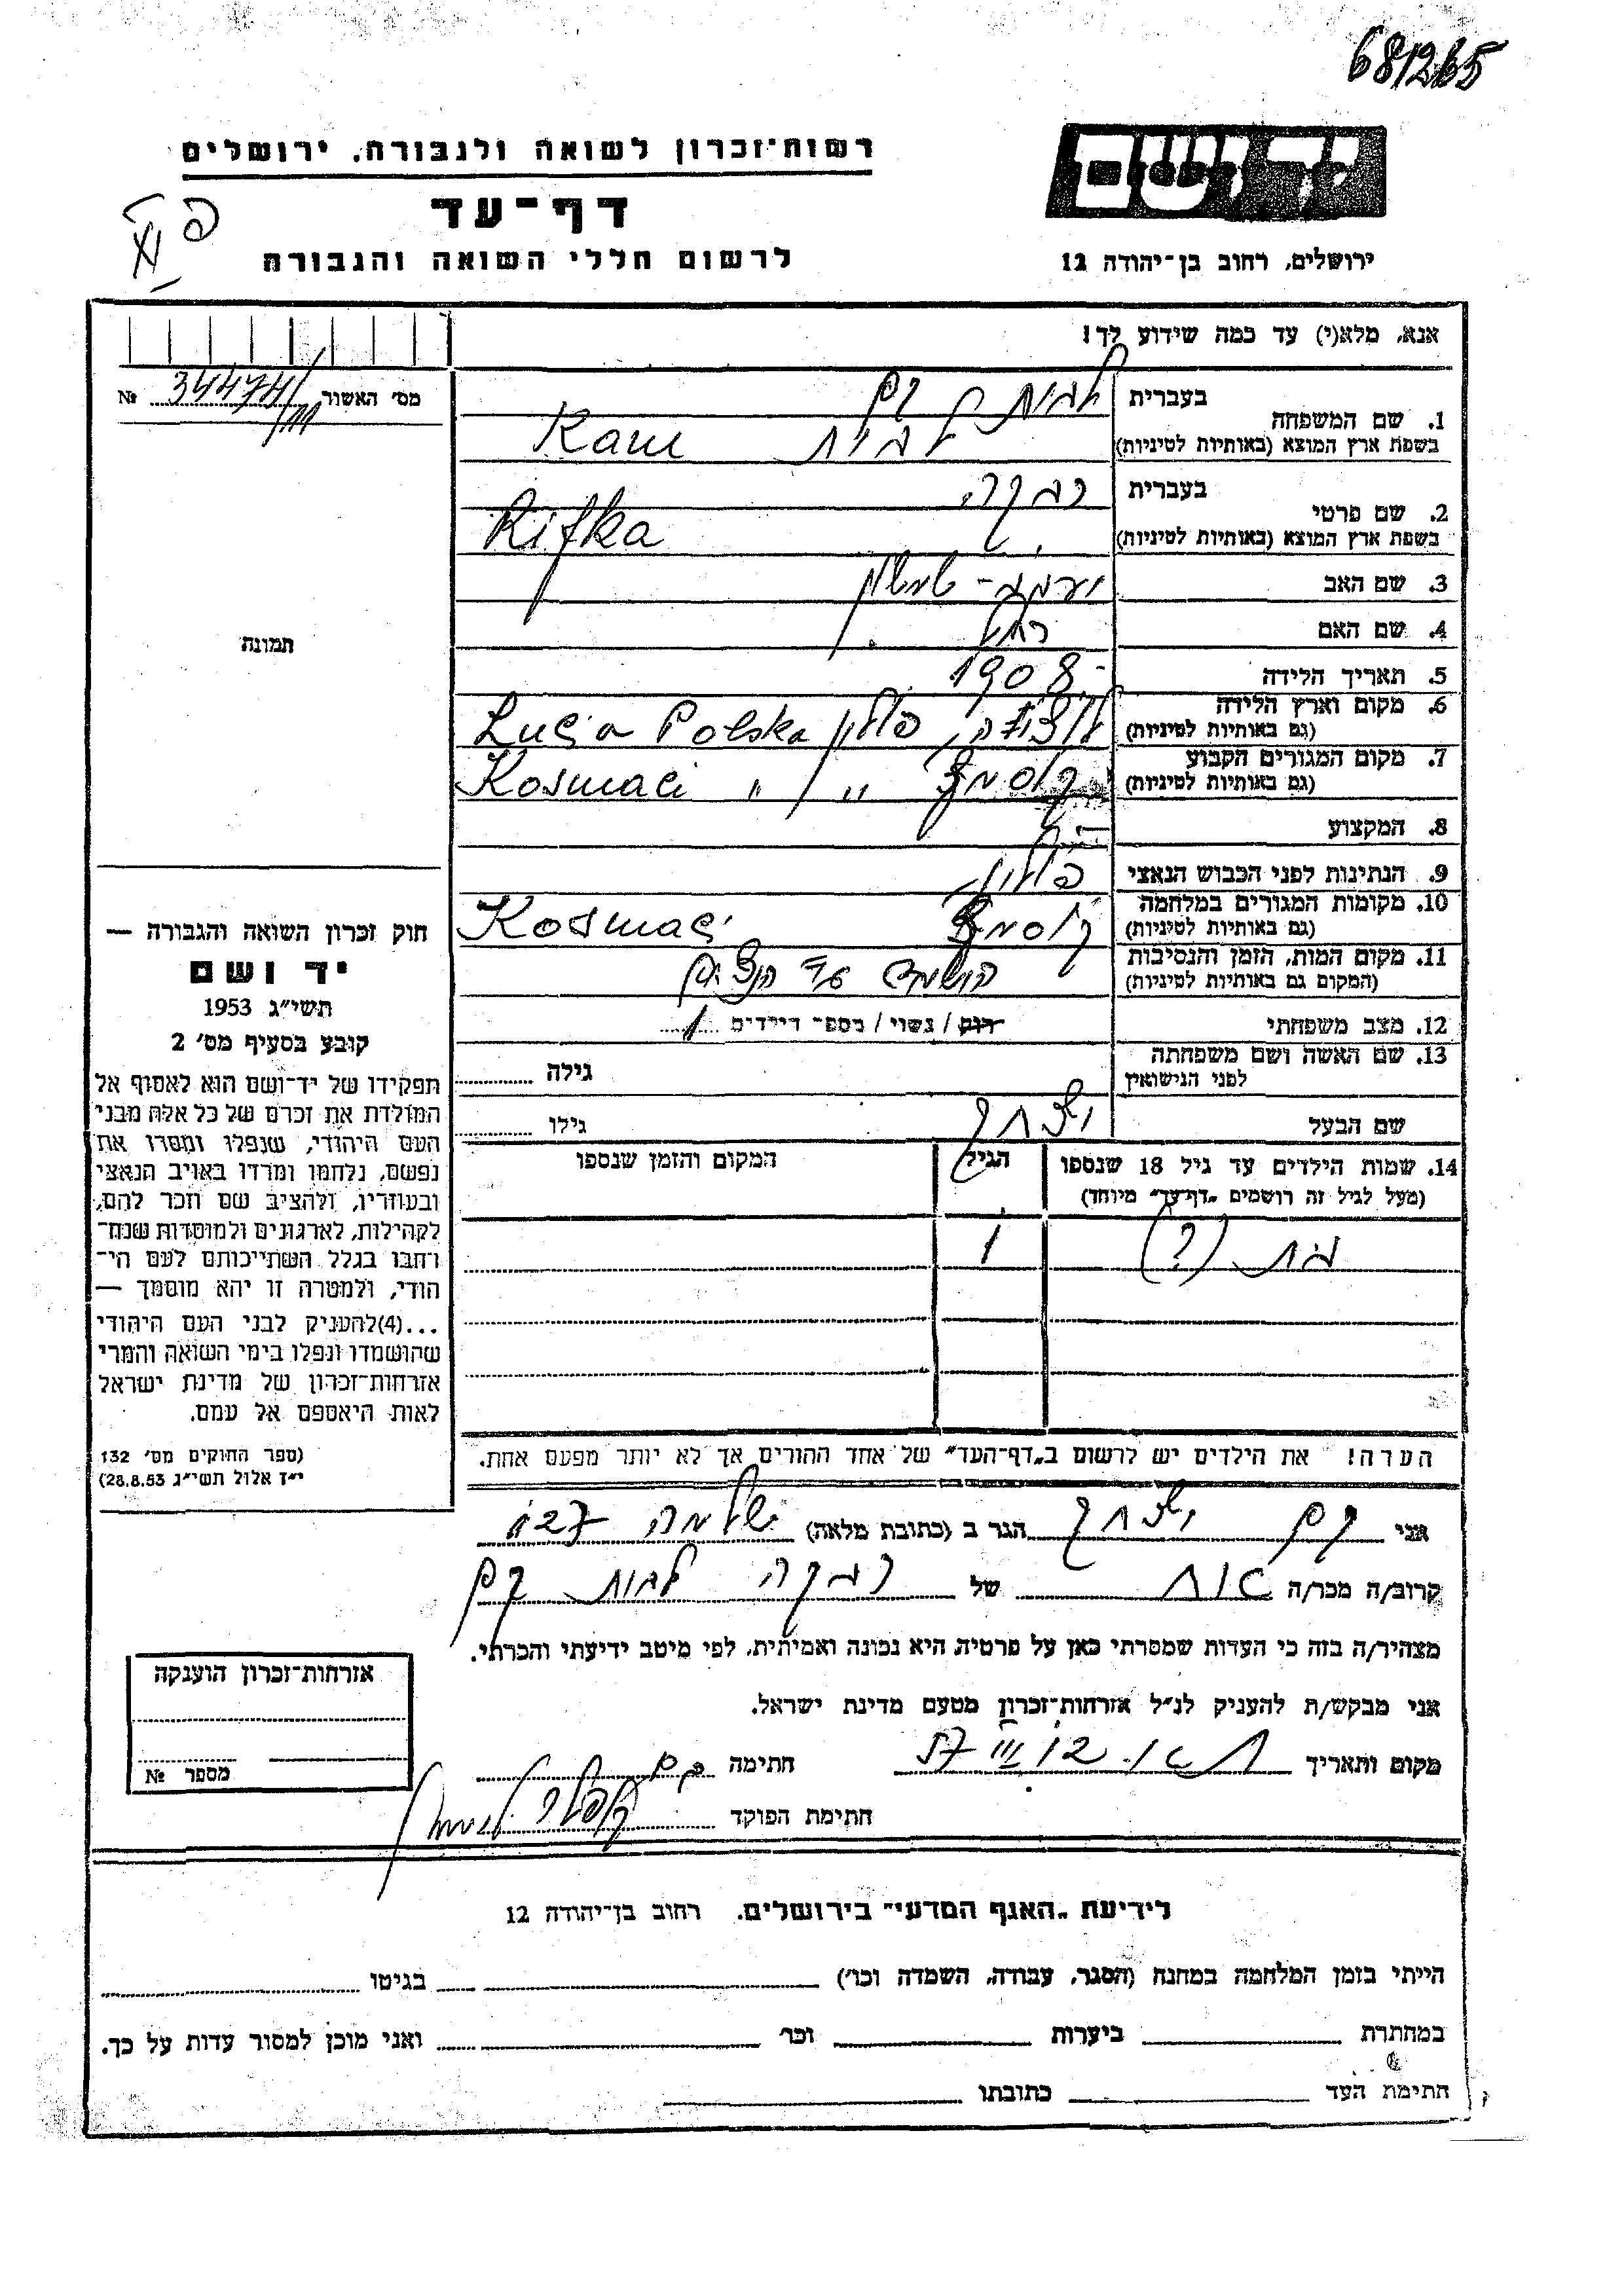 681265
רשות־זכרון לשואה ולגבורה, ירושלים
יד ושם
דף־עד
לרשום חללי השואה והגבורה
ירושלים, רחוב בן־יהודה 12
אנא, מלא(י) עד כמה שידוע לך!
מס׳ האשור № 34474/
1. שם המשפחה
בעברית קם
בשפת ארץ המוצא (באותיות לטיניות) Kam
2. שם פרטי
בעברית רבקה
בשפת ארץ המוצא (באותיות לטיניות) Rifka
3. שם האב
4. שם האם רחל
5. תאריך הלידה 1908
6. מקום וארץ הלידה
(גם באותיות לטיניות) פולין Polska
7. מקום המגורים הקבוע
(גם באותיות לטיניות) קוסמץ " " Kosmaci
8. המקצוע
9. הנתינות לפני הכבוש הנאצי
10. מקומות המגורים במלחמה
(גם באותיות לטיניות) קוסמץ
11. מקום המות, הזמן והנסיבות
(המקום גם באותיות לטיניות)
12. מצב משפחתי רוק / נשוי / מספר הילדים 1
13. שם האשה ושם משפחתה
לפני הנישואין גילה
שם הבעל יצחק גילו
14. שמות הילדים עד גיל 18 שנספו הגיל המקום והזמן שנספו
(מעל לגיל זה רושמים „דף־עד״ מיוחד)
בת (?) 1
הערה! את הילדים יש לרשום ב„דף־העד״ של אחד ההורים אך לא יותר מפעם אחת.
תמונה
חוק זכרון השואה והגבורה —
יד ושם
תשי״ג 1953
קובע בסעיף מס׳ 2
תפקידו של יד־ושם הוא לאסוף אל
המולדת את זכרם של כל אלה מבני
העם היהודי, שנפלו ומסרו את
נפשם, נלחמו ומרדו באויב הנאצי
ובעוזריו, ולהציב שם וזכר להם,
לקהילות, לארגונים ולמוסדות שנח־
רבו בגלל השתייכותם לעם הי־
הודי, ולמטרה זו יהא מוסמך —
...(4)להעניק לבני העם היהודי
שהושמדו ונפלו בימי השואה והמרי
אזרחות־זכרון של מדינת ישראל
לאות היאספם אל עמם.
(ספר החוקים מס׳ 132
י״ז אלול תשי״ג 28.8.53)
אני קם יצחק הגר ב (כתובת מלאה) שלמה
קרוב/ה מכר/ה של רבקה קם
מצהיר/ה בזה כי העדות שמסרתי כאן על פרטיה, היא נכונה ואמיתית, לפי מיטב ידיעתי והכרתי.
אני מבקש/ת להעניק לנ״ל אזרחות־זכרון מטעם מדינת ישראל.
מקום ותאריך חתימה קם
חתימת הפוקד
אזרחות־זכרון הוענקה
מספר №
לידיעת „האגף המדעי״ בירושלים, רחוב בן־יהודה 12
הייתי בזמן המלחמה במחנה (הסגר, עבודה, השמדה וכו׳) בגיטו
במחתרת ביערות וכו׳ ואני מוכן למסור עדות על כך.
חתימת העד כתובתו